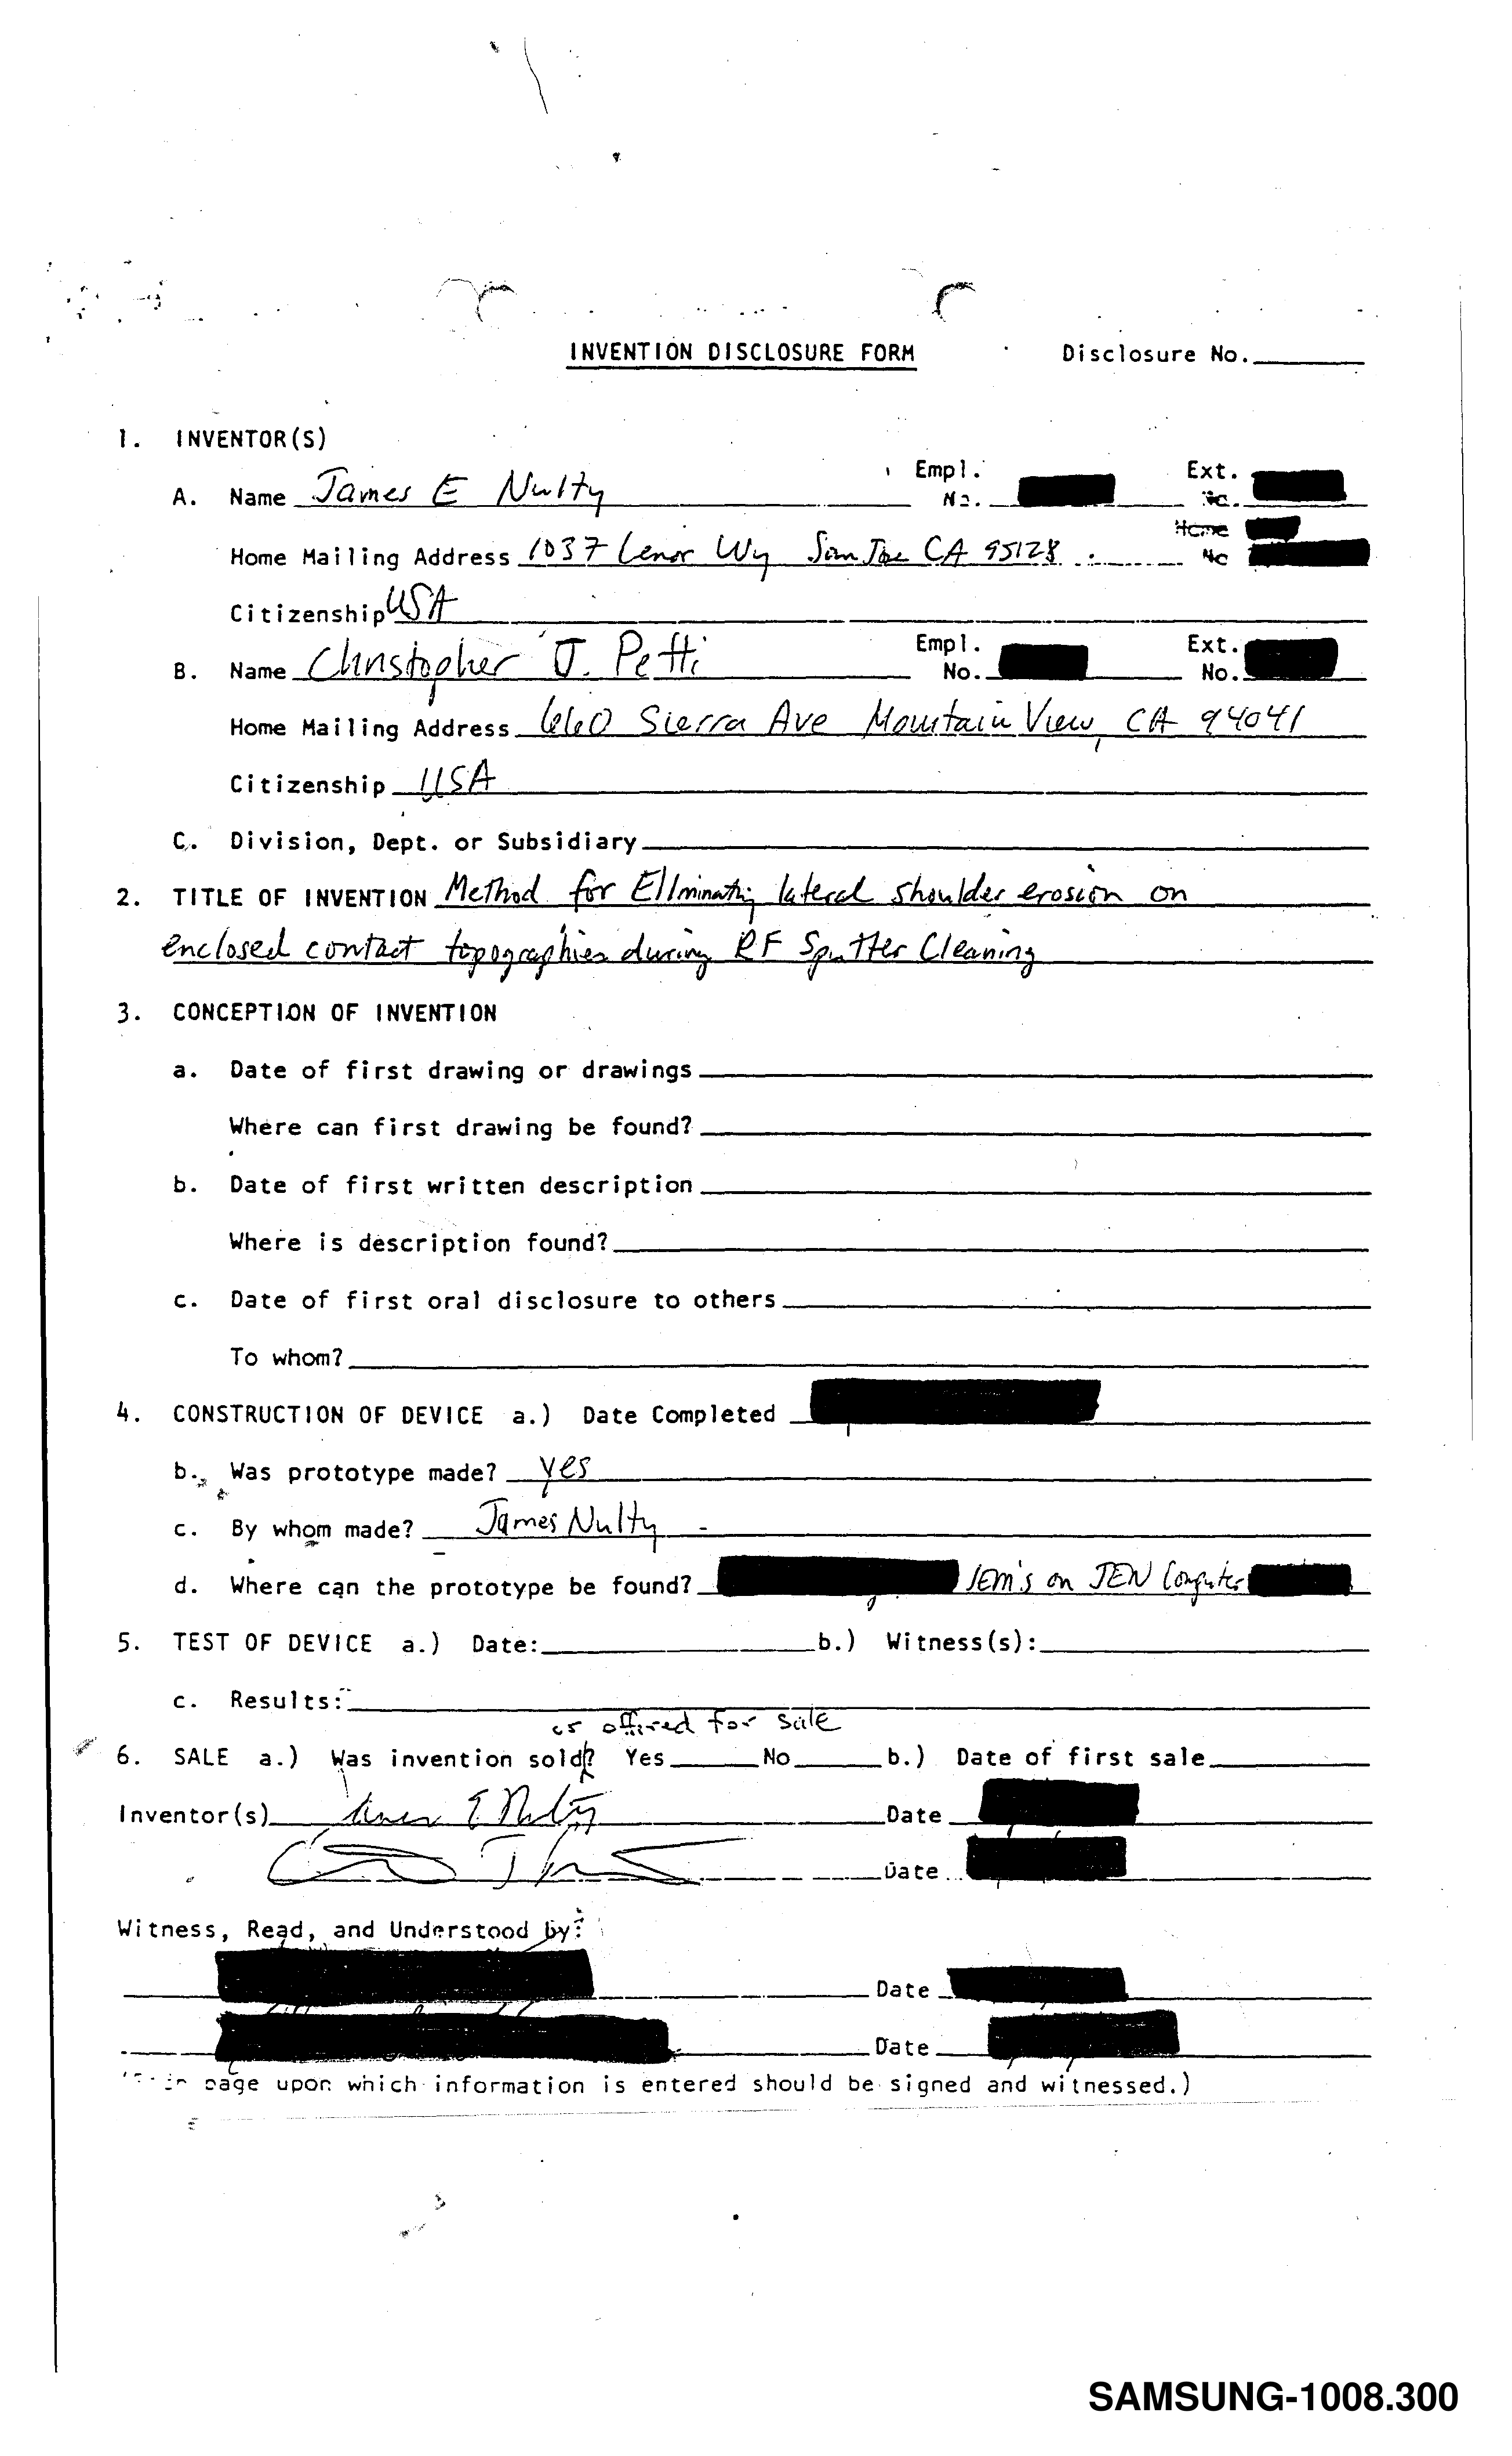 INVENTION DISCLOSURE FORM Disclosure No.
1. INVENTOR(S)
A. Name James E Nulty Empl. No. Ext. No.
Home Mailing Address 1037 Lenor Wy San Jose CA 95128 Home No
Citizenship USA
B. Name Christopher J. Petti Empl. No. Ext. No.
Home Mailing Address 660 Sierra Ave Mountain View, CA 94041
Citizenship USA
C. Division, Dept. or Subsidiary
2. TITLE OF INVENTION Method for Eliminating lateral shoulder erosion on
enclosed contact topographies during RF Sputter Cleaning
3. CONCEPTION OF INVENTION
a. Date of first drawing or drawings
Where can first drawing be found?
b. Date of first written description
Where is description found?
c. Date of first oral disclosure to others
To whom?
4. CONSTRUCTION OF DEVICE a.) Date Completed
b. Was prototype made? yes
c. By whom made? James Nulty
d. Where can the prototype be found? SEM's on JEN Computer
5. TEST OF DEVICE a.) Date: b.) Witness(s):
c. Results:
or offered for sale
6. SALE a.) Was invention sold? Yes No b.) Date of first sale
Inventor(s) James E Nulty Date
Date
Witness, Read, and Understood by:
Date
Date
page upon which information is entered should be signed and witnessed.)
SAMSUNG-1008.300